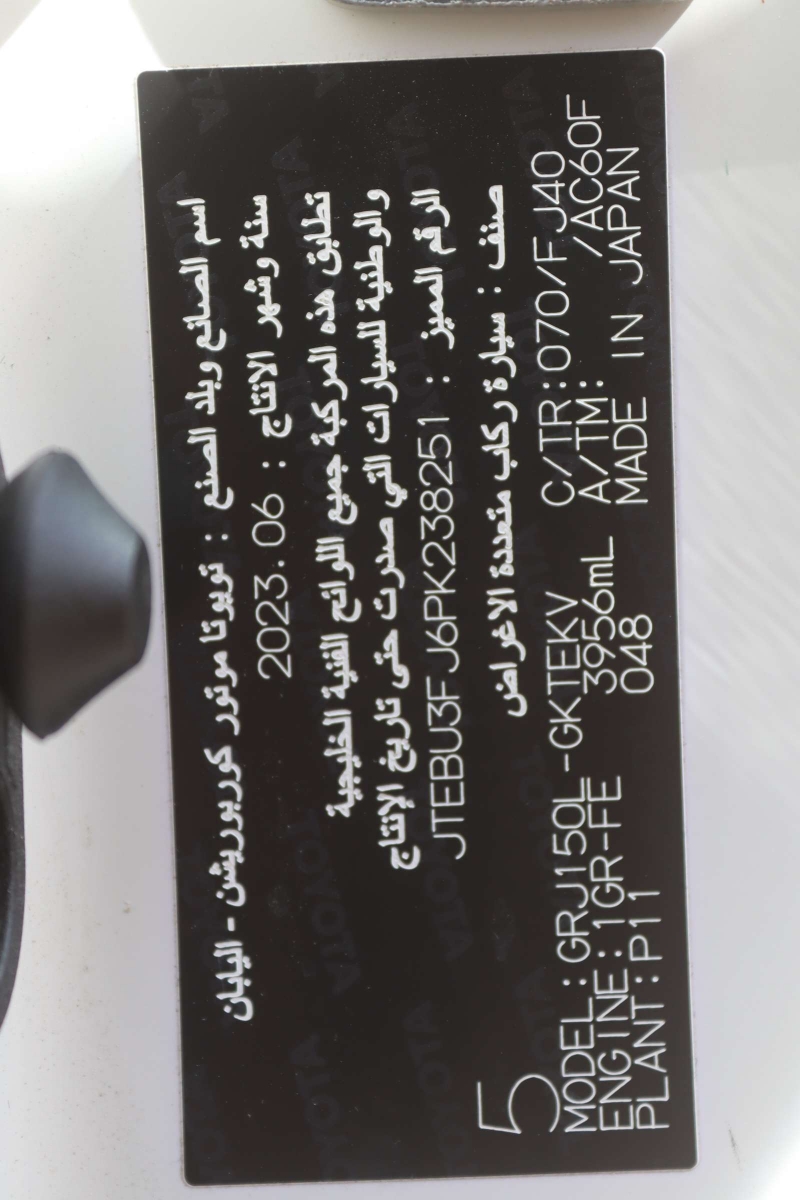 اسم الصانع وبلد الصنع : تويوتا موتور كوربوريشن - اليابان
سنة وشهر الانتاج : 2023.06
تطابق هذه المركبة جميع اللوائح الفنية الخليجية
والوطنية للسيارات التي صدرت حتى تاريخ الإنتاج
الرقم المميز : JTEBU3FJ6PK238251
صنف : سيارة ركاب متعددة الاغراض
5
MODEL:GRJ150L-GKTEKV C/TR:070/FJ40
ENGINE:1GR-FE 3956mL A/TM: /AC60F
PLANT:P11 048 MADE IN JAPAN